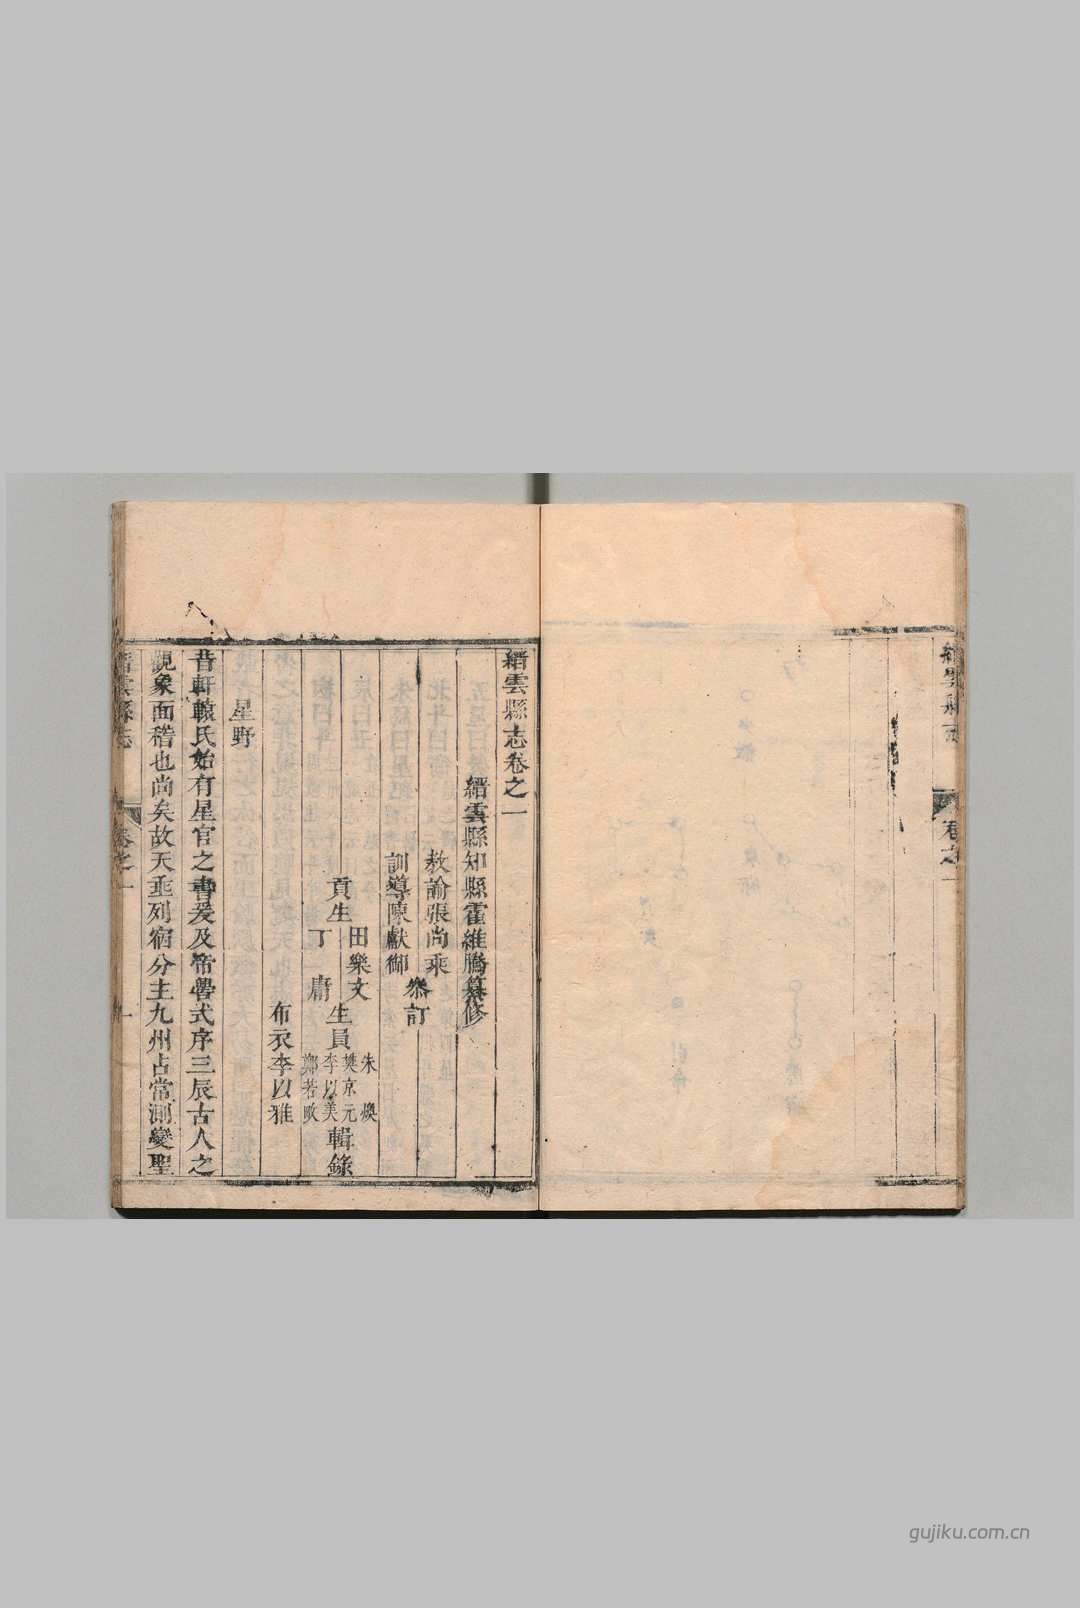 縉雲縣志
卷之一
縉雲縣志卷之一
縉雲縣知縣霍維騰纂修
教諭張尚乘
訓導陳獻御
叅訂
貢生
田樂文
丁庸
生員
朱煥
樊京元
李以美
鄭若
輯錄
布衣李以雅
星野
昔軒轅氏始有星官之書爰及帝嚳式序三辰古人之
觀象面稽也尚矣故天垂列宿分主九州占常測變聖
縉雲縣志
卷之一
一
gujiku.com.cn